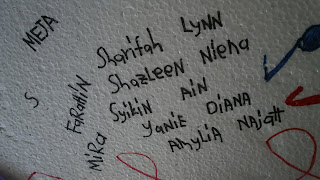 META
Sharifah LYNN
Shazleen Niena
S
Farahin
Syikin Ain
Yanie Diana
Mira
Amylia Najah